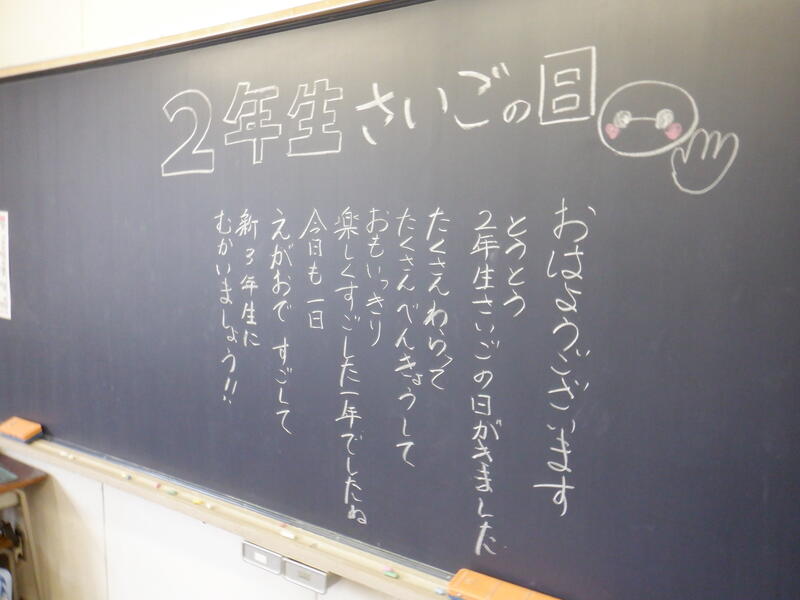 2年生さいごの日
おはようございます
とうとう
2年生さいごの日がきました
たくさんわらって
たくさんべんきょうして
おもいっきり
楽しくすごした一年でしたね
今日も一日
えがおで すごして
新3年生に
むかいましょう!!